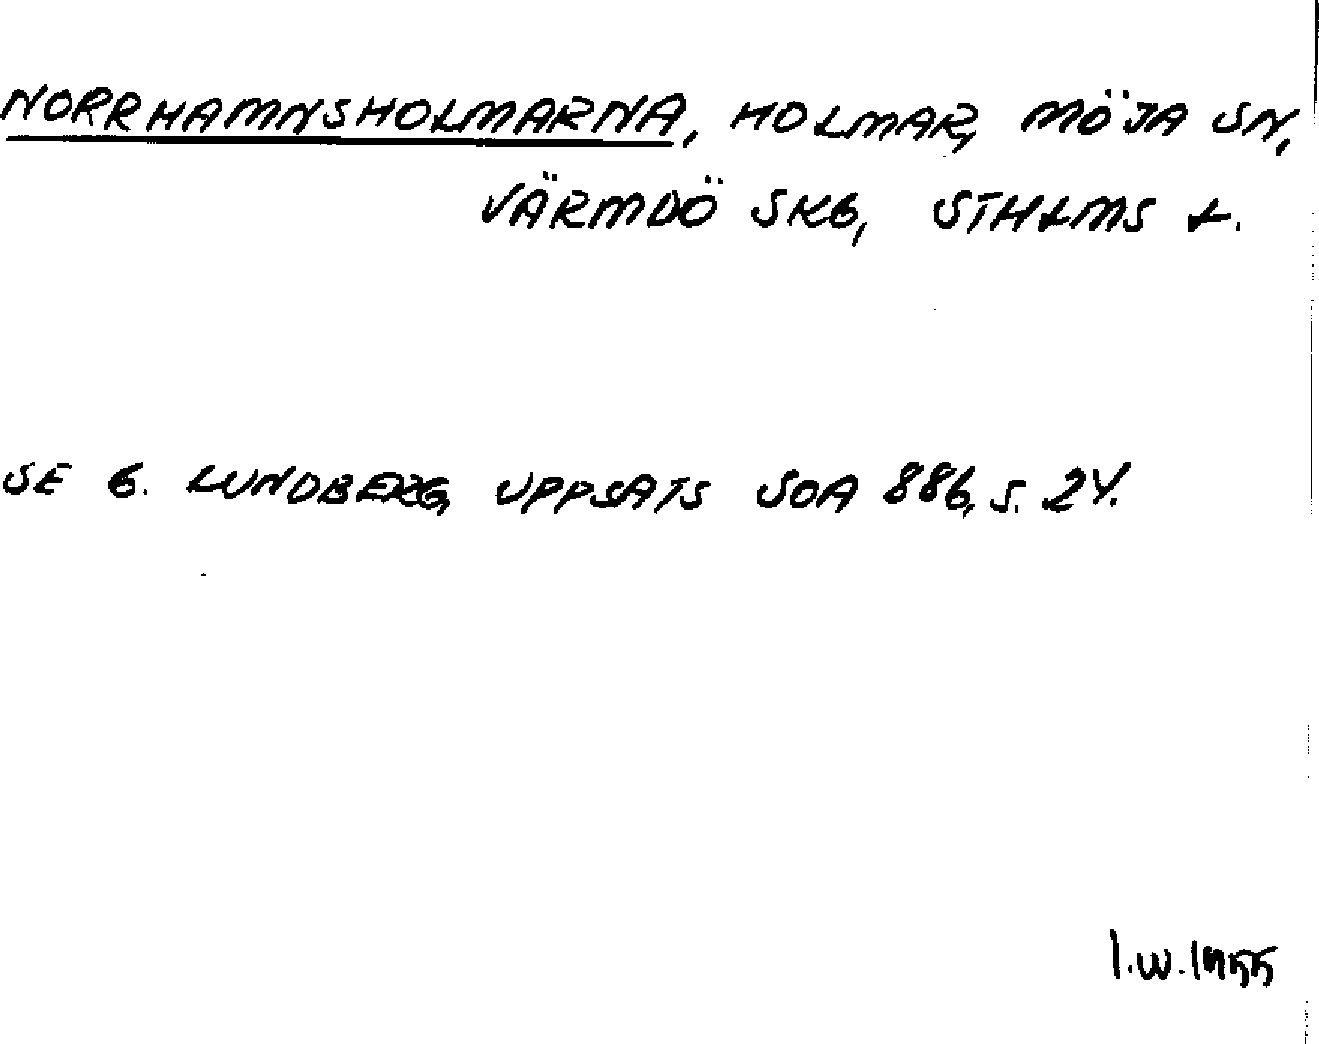 NORRHAMNSHOLMARNA, HOLMAR, MÖJA SN,
VÄRMDÖ SKG, STHLMS L.
SE G. LUNDBERG, UPPSATS SOA 886, S. 24.
I.W. 1955